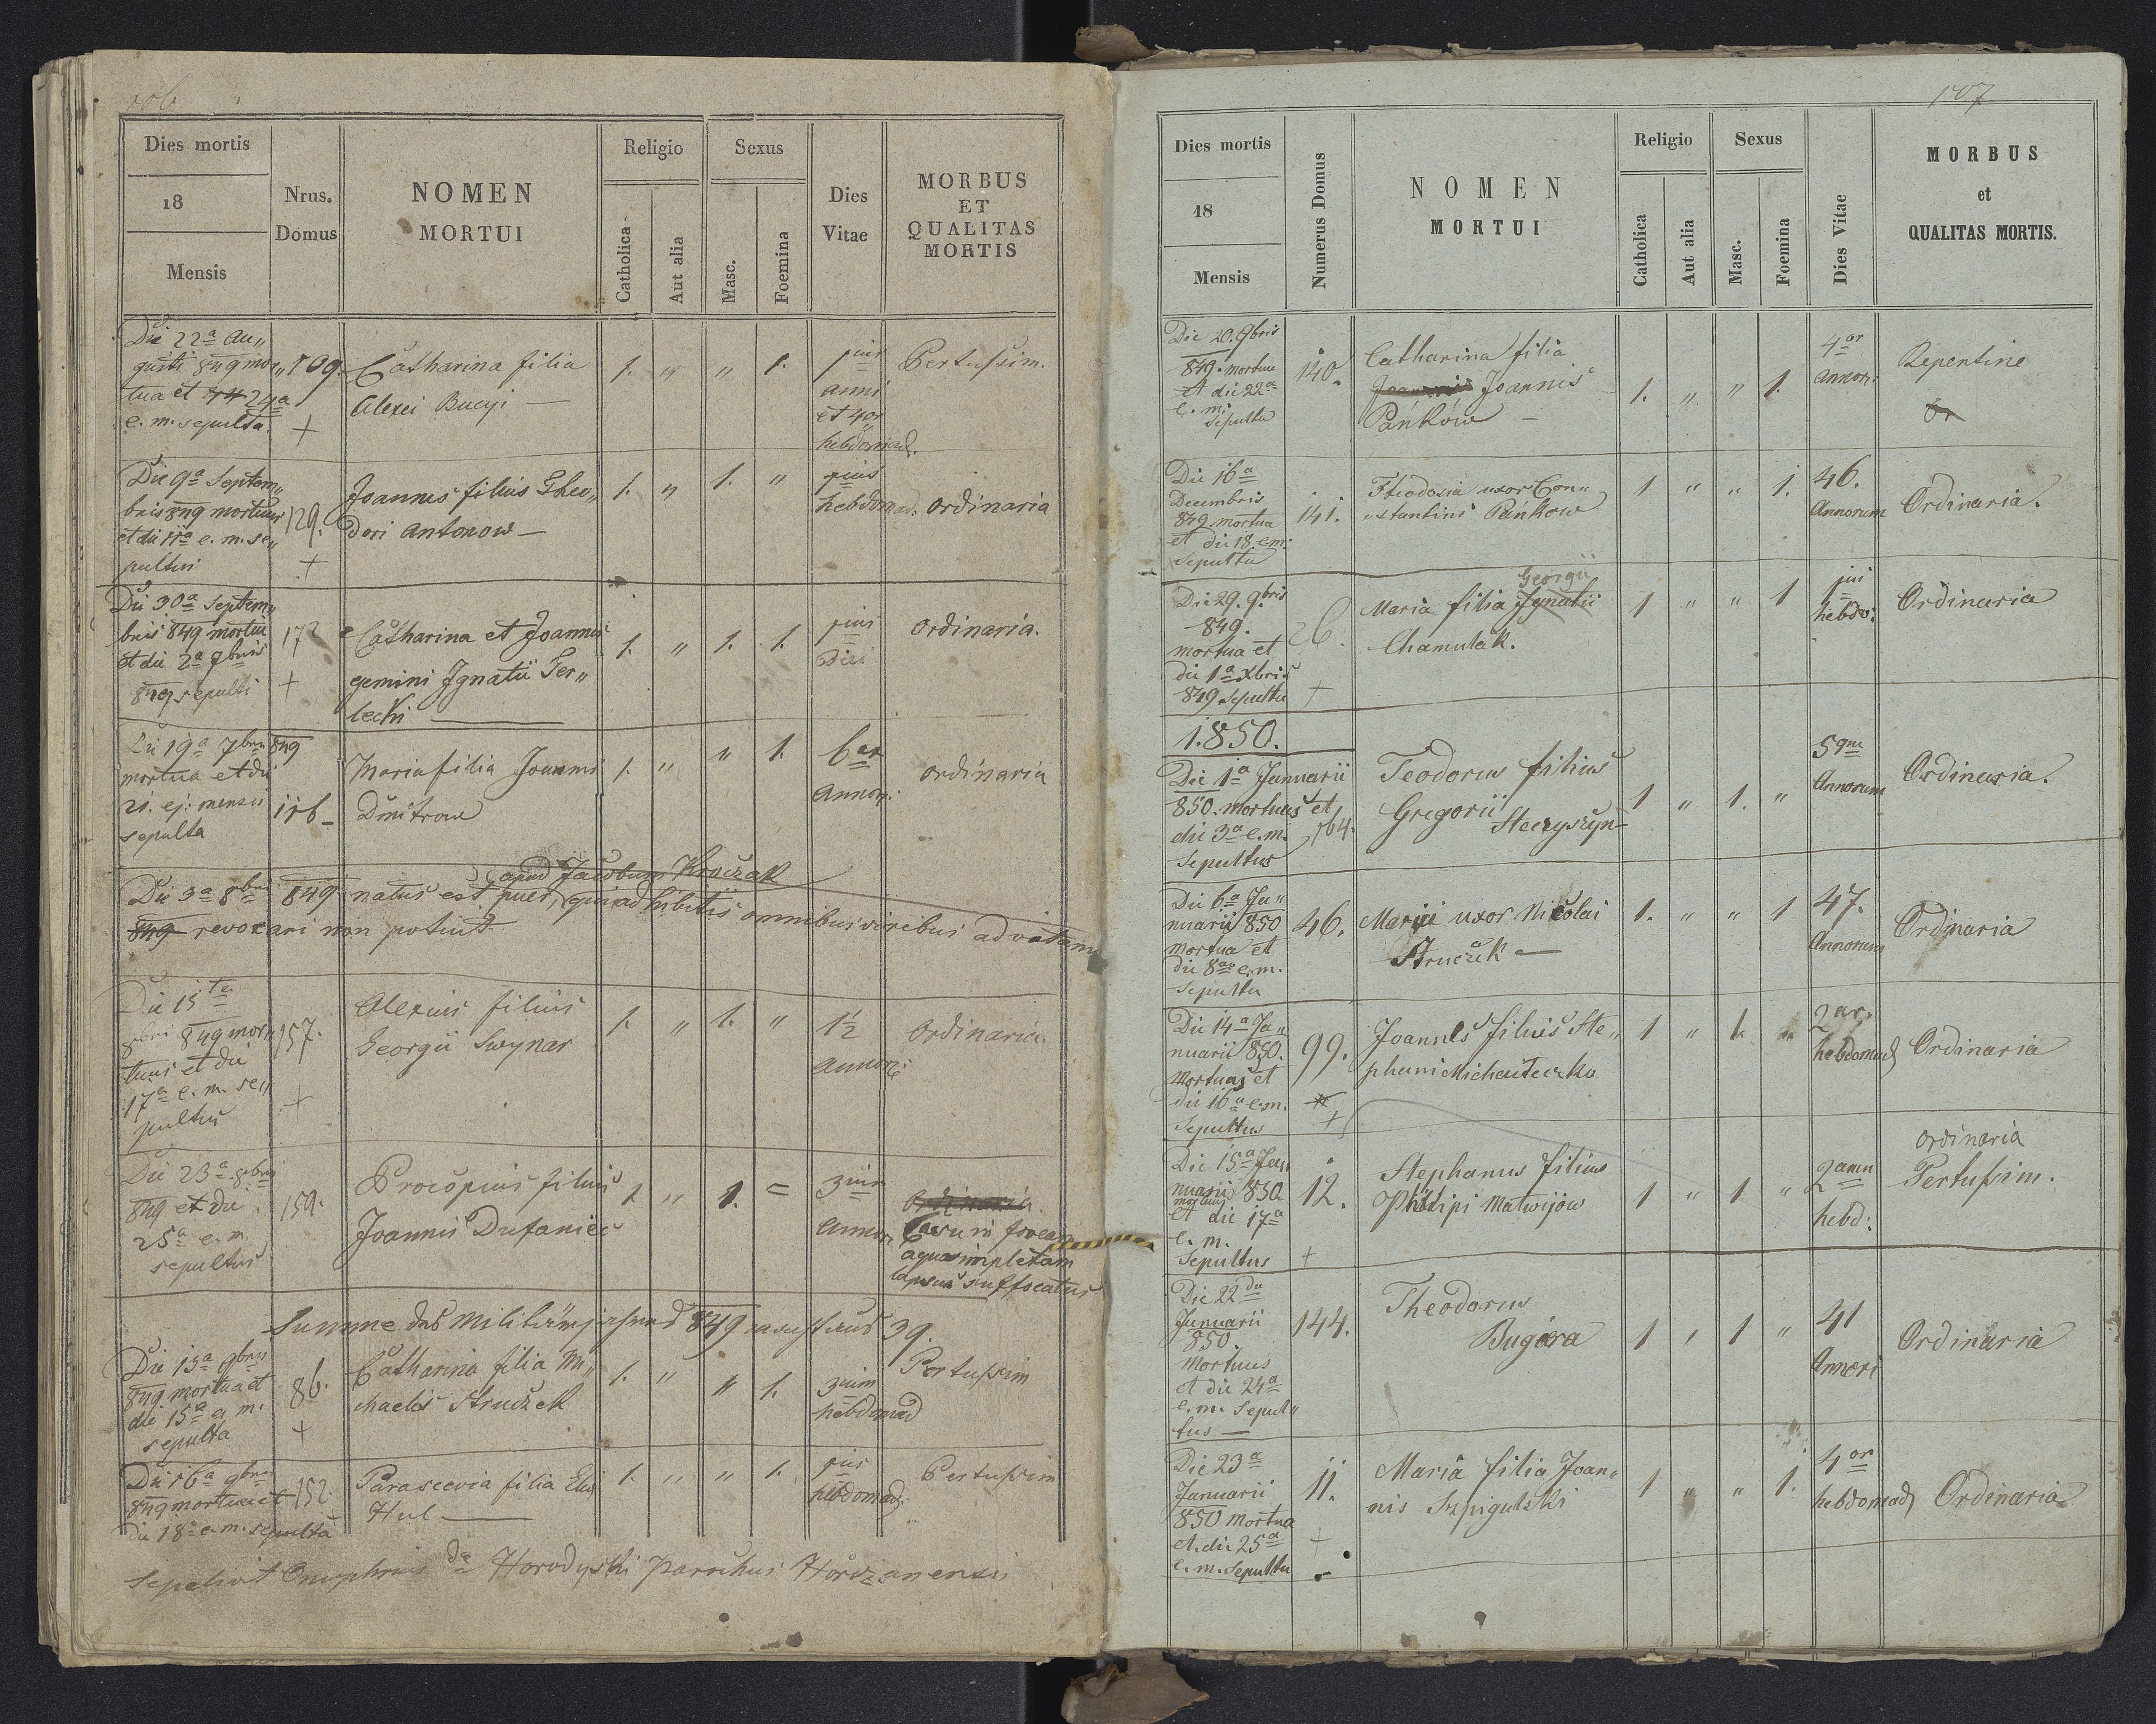 106
Dies mortis
18
Mensis
Nrus.
Domus
NOMEN
MORTUI
Religio
Catholica
Aut alia
Sexus
Masc.
Foemina
Dies
Vitae
MORBUS
ET
QUALITAS
MORTIS
Die 22a Au„
gusti 849 mor„
tua et 24a
e. m. sepulta.
109.
+
Catharina filia
Alexei
1. „ „ 1.
anni
et 4or
hebdomad.
Pertussim.
Die 9a Septem„
bris 849 mortuus
et die 11a e. m. se„
pultus
129.
+
Joannes filius Theo„
dori Antonow —
1. „ 1. „
hebdomad.
Ordinaria
Die 30a Septem„
bris 849 mortui
et die 2a
849 sepulti
172
+
Catharina et Joannes
gemini Ignatii Ter„
lecki —
1. „ 1. 1.
diei
Ordinaria.
Die 19a 7bris 849
mortua et die
21. ej: mensis
sepulta
116 –
Maria filia Joannis
Dmitrow
1. „ „ 1.
6ex
Annor:
Ordinaria
apud Jacobum Kroczak
Die 3a 8bris 849 natus est puer, qui adhibitis omnibus viribus ad vitam
849 revocari non potuit
Die 15ta
8bris 849 mor„
tuus et die
17a e. m. se„
pultus
157.
+
Alexius filius
Georgii Swynar
1. „ 1. „
1½
Annor:
Ordinaria.
Die 23a 8bris
849 et die
25a e. m.
sepultus
159.
Procopius filius
Joannis Dufaniec
1. „ 1. =
Annor:
Ordinaria.
Casu in foveam
aqua impletam
lapsus suffocatus
Summe des Militärjahres 849 39.
Die 13a 9bris
849 mortua et
die 15a e. m.
sepulta
86.
+
Catharina filia Mi„
chaelis Struczek
1. „ „ 1.
hebdomad
Pertussim
Die 16a 9bris
849 mortua et
die 18a e. m. sepulta
152.
Parascevia filia Eliæ
Hul —
1. „ „ 1.
hebdomad:
Pertussim
Sepelivit Onuphrius de Horodyski parochus
107
Dies mortis
18
Mensis
Numerus Domus
NOMEN
MORTUI
Religio
Catholica
Aut alia
Sexus
Masc.
Foemina
Dies Vitae
MORBUS
et
QUALITAS MORTIS.
Die 20. 9bris
849. mortua
et die 22a
e. m.
sepulta
140.
Catharina filia
Joannis Joannis
Pańków —
1. „ „ 1.
4or
annor:
Repentine
Or
Die 16a
Decembris
849. mortua
et die 18. e.m.
Sepulta
141.
Theodosia uxor Con„
stantini Pankow
1 „ „ 1.
46.
Annorum
Ordinaria.
Die 29. 9bris
849.
mortua et
die 1a Xbris
849 Sepulta
26.
+
Georgii
Maria filia Ignatii
Chamulak.
1 „ „ 1
hebdo:
Ordinaria
1.850.
Die 1a Januarii
850. mortuus et
die 3a e. m.
Sepultus
164.
Teodorus filius
Gregorii
Steczyszyn –
1 „ 1. „
5que
Annorum
Ordinaria.
Die 6a Ja„
nuarii 850
mortua et
die 8a e. m.
Sepulta
46.
Maria uxor Nicolai
Struczek —
1. „ „ 1
47.
Annorum
Ordinaria
Die 14a Ja„
nuarii 850.
Mortuus et
die 16a e. m.
Sepultus
99.
+
Joannes filius Ste„
phani
1 „ 1. „
hebdomad
Ordinaria
Die 15a Jan
nuarii 850
mortuus
et die 17a
e. m.
Sepultus
12.
+
Stephanus filius
Philipi Matwijów
1 „ 1 „
hebd:
Ordinaria
Pertussim.
Die 22da
Januarii
850.
Mortuus
et die 24a
e. m. Sepul„
tus —
144.
Theodorus
Bugera
1 „ 1 „
41
Ordinaria
Die 23a
Januarii
850 Mortua
et die 25a
e. m. Sepulta
11.
+
Maria filia Joan„
nis Szpigulski
1 „ „ 1.
4or
hebdomad
Ordinaria